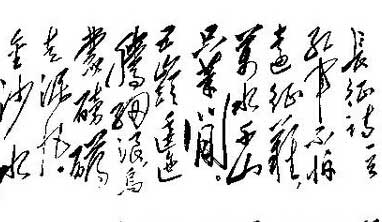 长征诗一首
红军不怕
远征难
万水千山
只等闲
五岭逶迤
腾细浪乌
蒙磅礴
走泥丸
金沙水